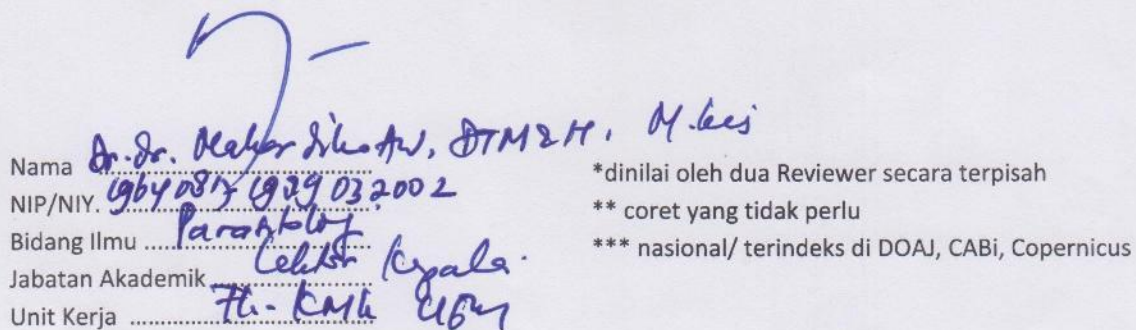 Nama Dr. dr. Mahardika AW, DTM&H, M.Kes
NIP/NIY. 19640813 1989 03 2002
Bidang Ilmu Parasitologi
Jabatan Akademik Lektor Kepala
Unit Kerja UGM
*dinilai oleh dua Reviewer secara terpisah
** coret yang tidak perlu
*** nasional/ terindeks di DOAJ, CABi, Copernicus